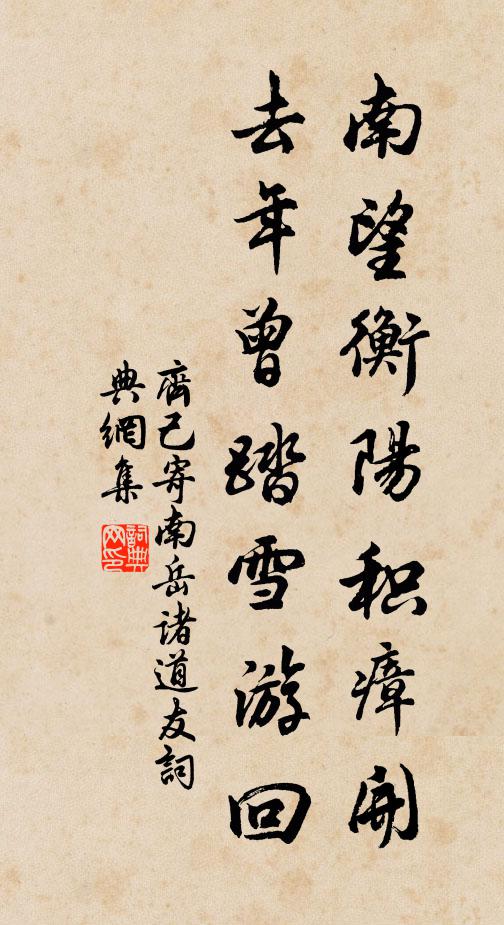 南望衡陽积瘴開
去年曾踏雪游回
齊己寄南岳諸道友詞
典網集
詞典
网印